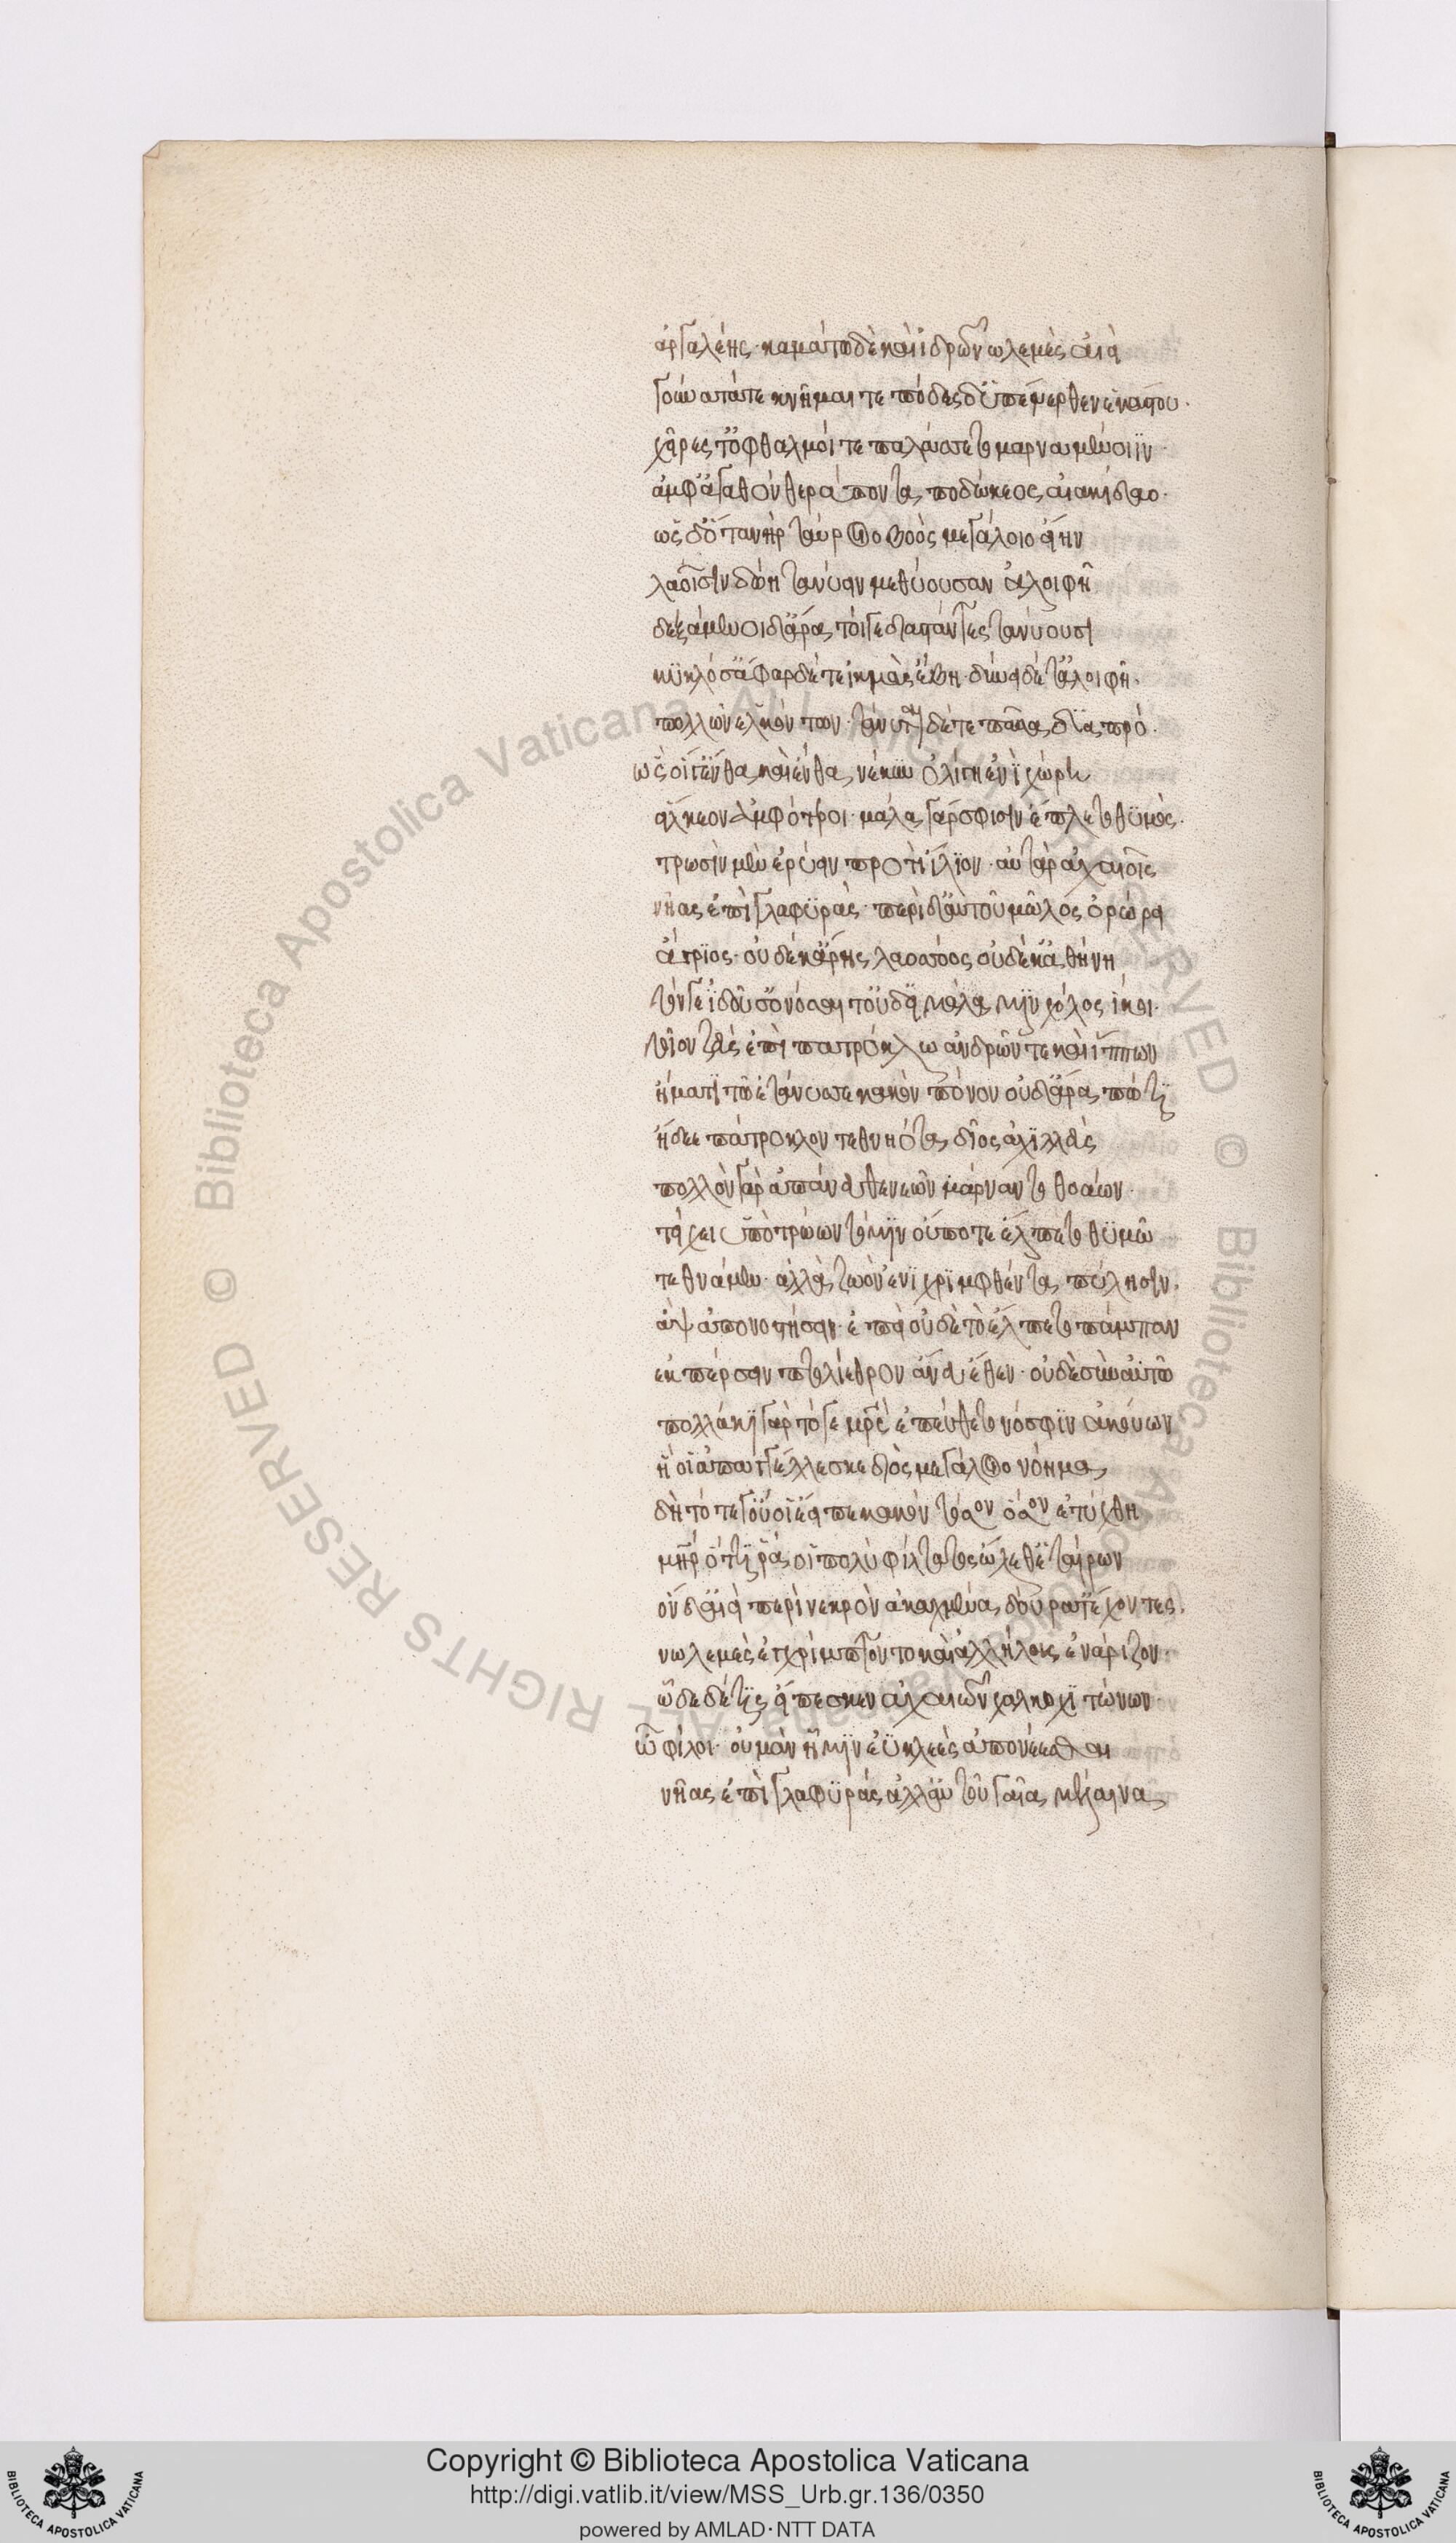 ἀργαλέης· καμάτῳ δὲ καὶ ἱδρῷ νωλεμὲς αἰεὶ
γούνατά τε κνῆμαί τε πόδες θ' ὑπένερθεν ἑκάστου·
χεῖρές τ' ὀφθαλμοί τε παλάσσετο μαρναμένοιϊν
ἀμφ' ἀγαθὸν θεράποντα ποδώκεος αἰακίδαο·
ὡς δ' ὅτ' ἀνὴρ ταύροιο βοὸς μεγάλοιο βοείην
λαοῖσιν δώῃ τανύειν μεθύουσαν ἀλοιφῇ
δεξάμενοι δ' ἄρα τοί γε διαστάντες τανύουσι
κυκλόσ' ἄφαρ δέ τε ἰκμὰς ἔβη· δύνει δέ τ' ἀλοιφὴ·
πολλῶν ἑλκόντων· τάνυται δέ τε πᾶσα διὰ πρό·
ὣς οἵ γ' ἔνθα καὶ ἔνθα νέκυν ὀλίγῃ ἐνὶ χώρῃ
εἵλκεον ἀμφότεροι· μάλα γάρ σφισιν ἔλπετο θυμὸς·
τρωσὶν μὲν ἐρύειν προτὶ ἴλιον· αὐτὰρ ἀχαιοῖς
νῆας ἐπὶ γλαφυρὰς· περὶ δ' αὐτοῦ μῶλος ὀρώρει
ἄγριος· οὐδέ κ' ἄρης λαοσσόος οὐδέ κ' ἀθήνη
τόν γε ἰδοῦσ' ὀνόσαιτ' οὐδ' εἰ μάλα μιν χόλος ἵκοι·
τοῖον ζεὺς ἐπὶ πατρόκλῳ ἀνδρῶν τε καὶ ἵππων
ἤματι τῷ ἐτάνυσσε κακὸν πόνον οὐδ' ἄρα πώ τι
ᾔδεε πάτροκλον τεθνηότα δῖος ἀχιλλεὺς
πολλὸν γὰρ ἀπάνευθε νεῶν μάρναντο θοάων·
τείχει ὕπο τρώων τό μιν οὔποτε ἔλπετο θυμῷ
τεθνάμεν· ἀλλὰ ζωὸν ἐνιχριμφθέντα πύλῃσιν·
ἂψ ἀπονοστήσειν· ἐπεὶ οὐδὲ τὸ ἔλπετο πάμπαν
ἐκπέρσειν πτολίεθρον ἄνευ ἕθεν· οὐδὲ σὺν αὐτῷ
πολλάκι γὰρ τό γε μητρὸς ἐπεύθετο νόσφιν ἀκούων
ἥ οἱ ἀπαγγέλλεσκε διὸς μεγάλοιο νόημα
δὴ τότε γ' οὔ οἱ ἔειπε κακὸν τόσον ὅσον ἐτύχθη
μήτηρ ὅττι ῥά οἱ πολὺ φίλτατος ὤλεθ' ἑταίρων
οἱ δ' αἰεὶ περὶ νεκρὸν ἀκαχμένα δούρατ' ἔχοντες
νωλεμὲς ἐγχρίμπτοντο καὶ ἀλλήλους ἐνάριζον·
ὧδε δέ τις εἴπεσκεν ἀχαιῶν χαλκοχιτώνων·
ὦ φίλοι· οὐ μὰν ἧμιν ἐϋκλεὲς ἀπονέεσθαι
νῆας ἐπὶ γλαφυρὰς ἀλλ' αὐτοῦ γαῖα μέλαινα